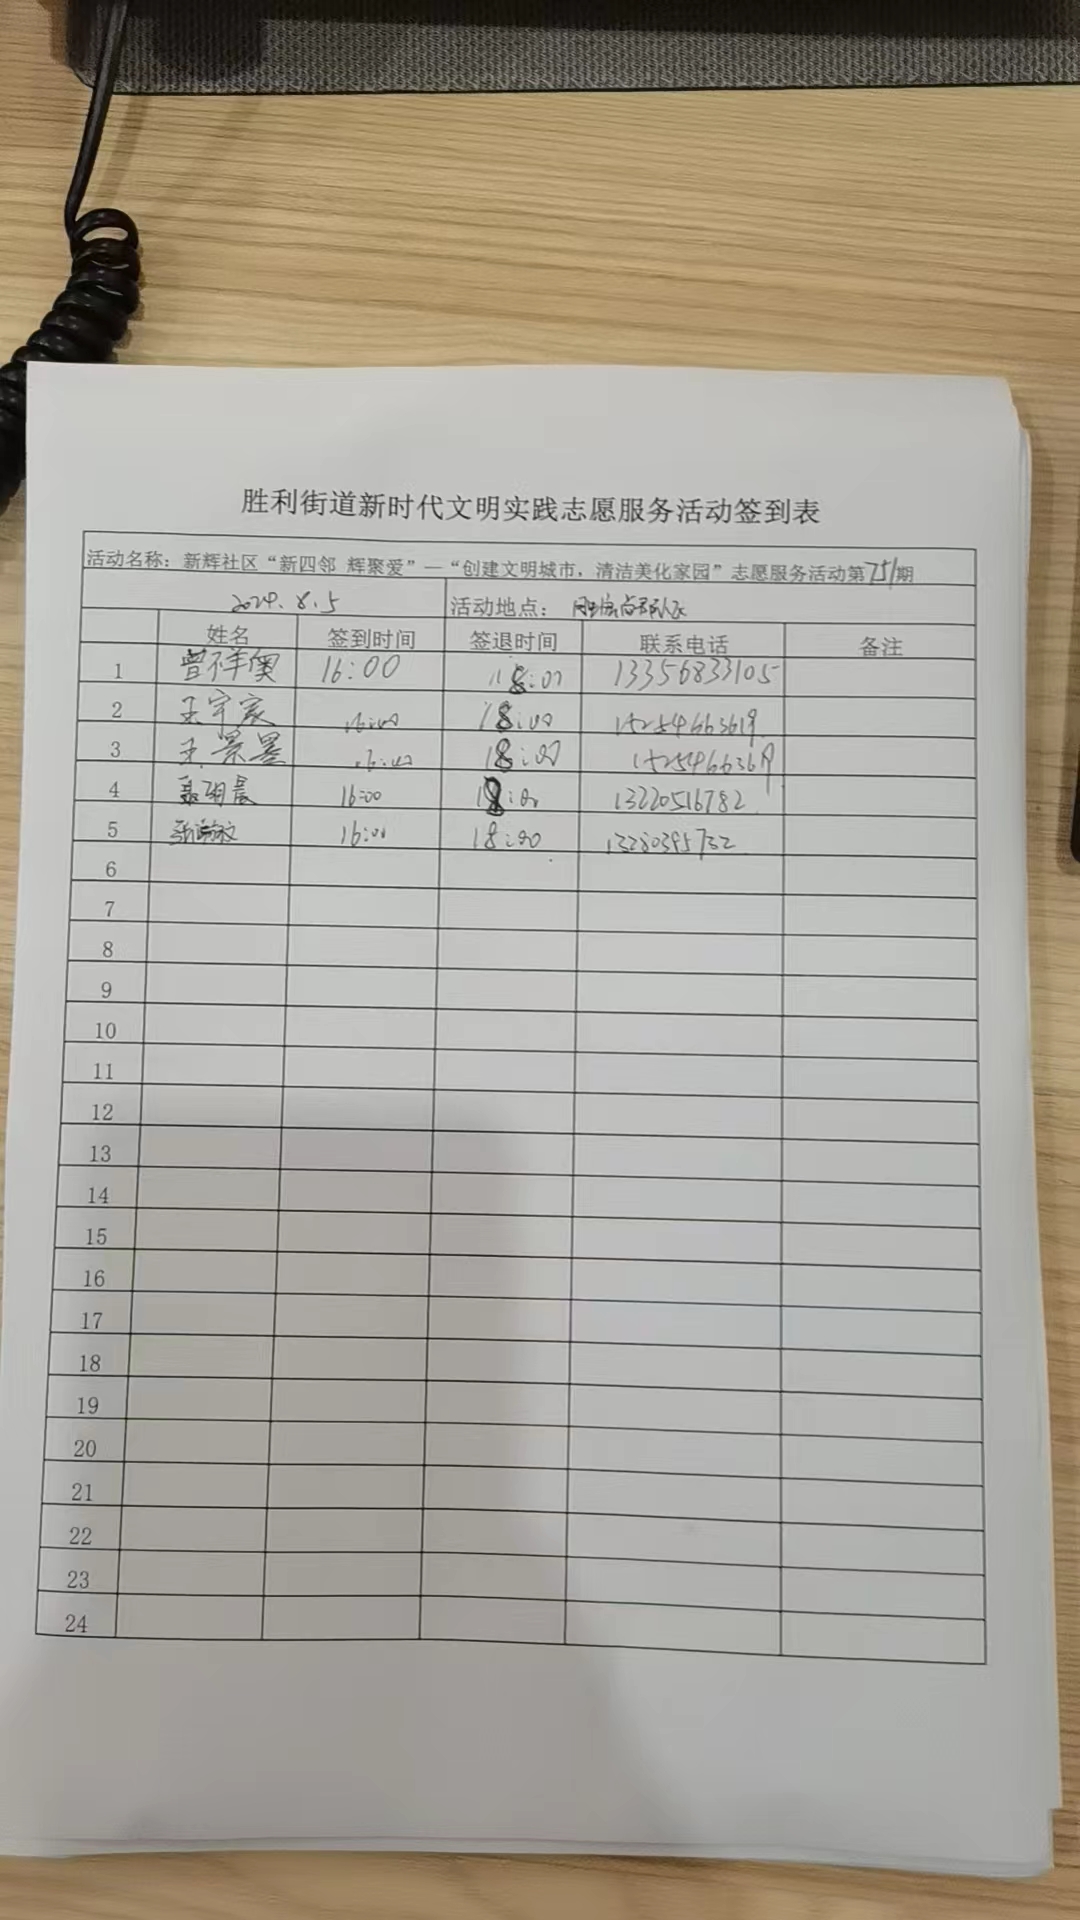 胜利街道新时代文明实践志愿服务活动签到表
活动名称：新辉社区“新四邻 辉聚爱”—“创建文明城市，清洁美化家园”志愿服务活动第751期
2024.8.5 活动地点：
姓名 签到时间 签退时间 联系电话 备注
1 曾祥奥 16:00 18:00 13356833105
2 王宇宸 16:00 18:00 15254663619
3 王景墨 16:00 18:00 15254663619
4 聂明晨 16:00 18:00 13220516782
5 16:00 18:00 13280395732
6
7
8
9
10
11
12
13
14
15
16
17
18
19
20
21
22
23
24